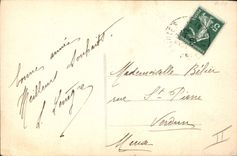 bonne année
Meilleurs Souhaits
Mademoiselle Bélier
rue St Pierre
Verdun
Meuse
II